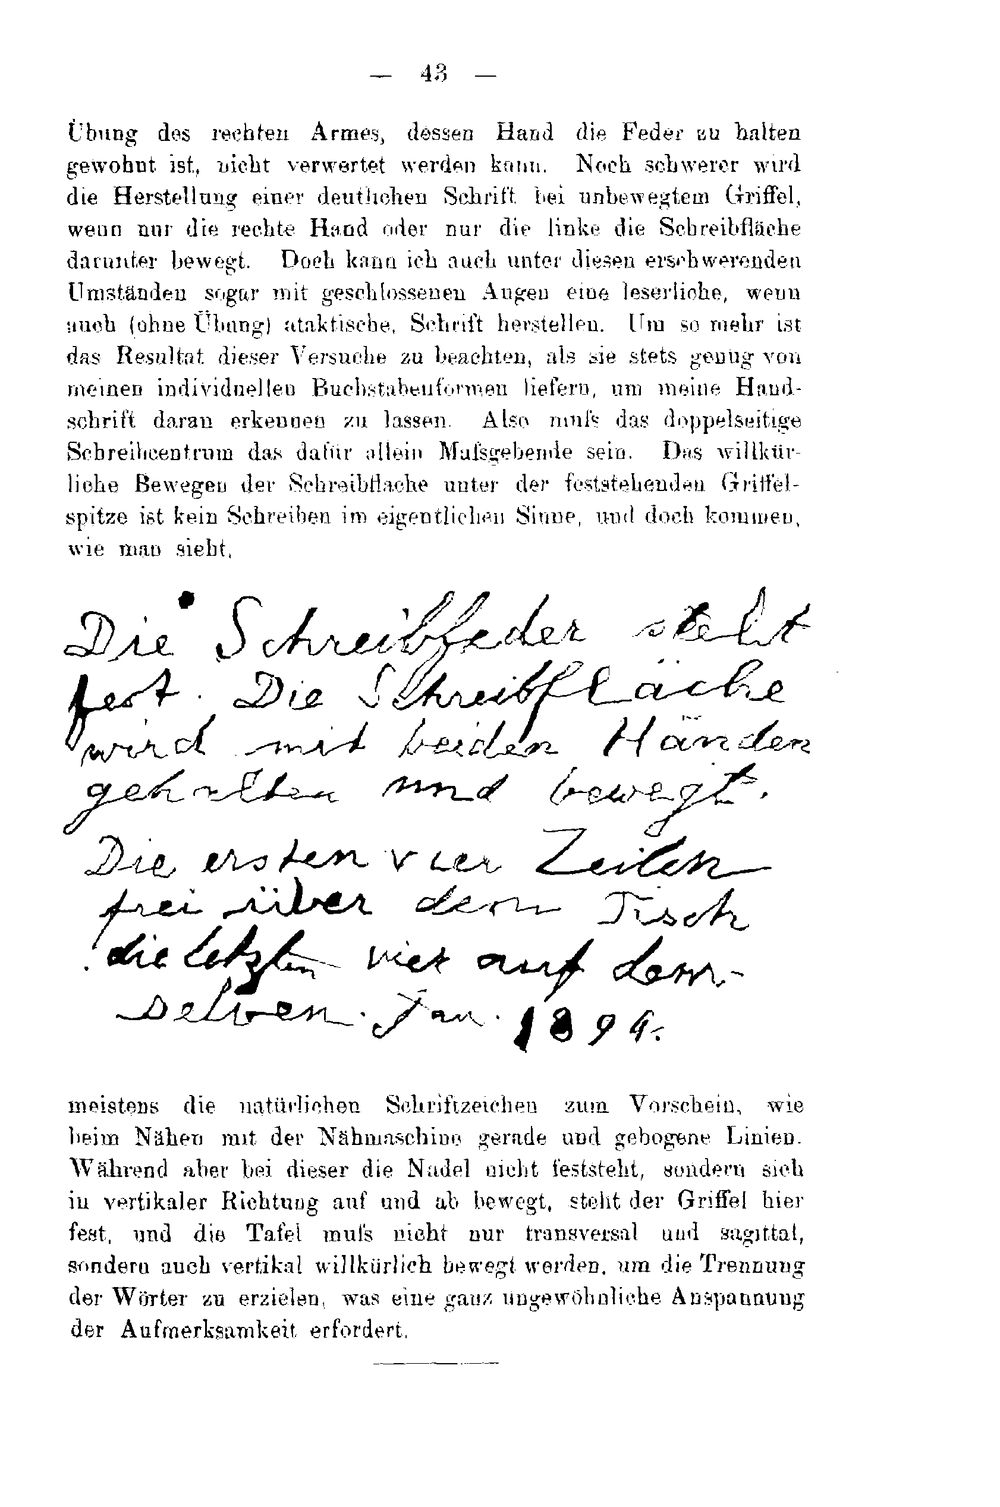 — 43 —
Übung des rechten Armes, dessen Hand die Feder zu halten
gewohnt ist, nicht verwertet werden kann. Noch schwerer wird
die Herstellung einer deutlichen Schrift bei unbewegtem Griffel,
wenn nur die rechte Hand oder nur die linke die Schreibfläche
darunter bewegt. Doch kann ich auch unter diesen erschwerenden
Umständen sogar mit geschlossenen Augen eine leserliche, wenn
auch (ohne Übung) ataktische, Schrift herstellen. Um so mehr ist
das Resultat dieser Versuche zu beachten, als sie stets genug von
meinen individuellen Buchstabenformen liefern, um meine Hand-
schrift daran erkennen zu lassen. Also muſs das doppelseitige
Schreibcentrum das dafür allein Maſsgebende sein. Das willkür-
liche Bewegen der Schreibfläche unter der feststehenden Griffel-
spitze ist kein Schreiben im eigentlichen Sinne, und doch kommen,
wie man sieht,
Die Schreibfeder steht
fest. Die Schreibfläche
wird mit beiden Händen
gehalten und bewegt.
Die ersten vier Zeilen
frei über dem Tisch
die letzten vier auf dem-
selben. Jan. 1894.
meistens die natürlichen Schriftzeichen zum Vorschein, wie
beim Nähen mit der Nähmaschine gerade und gebogene Linien.
Während aber bei dieser die Nadel nicht feststeht, sondern sich
in vertikaler Richtung auf und ab bewegt, steht der Griffel hier
fest, und die Tafel muſs nicht nur transversal und sagittal,
sondern auch vertikal willkürlich bewegt werden, um die Trennung
der Wörter zu erzielen, was eine ganz ungewöhnliche Anspannung
der Aufmerksamkeit erfordert.